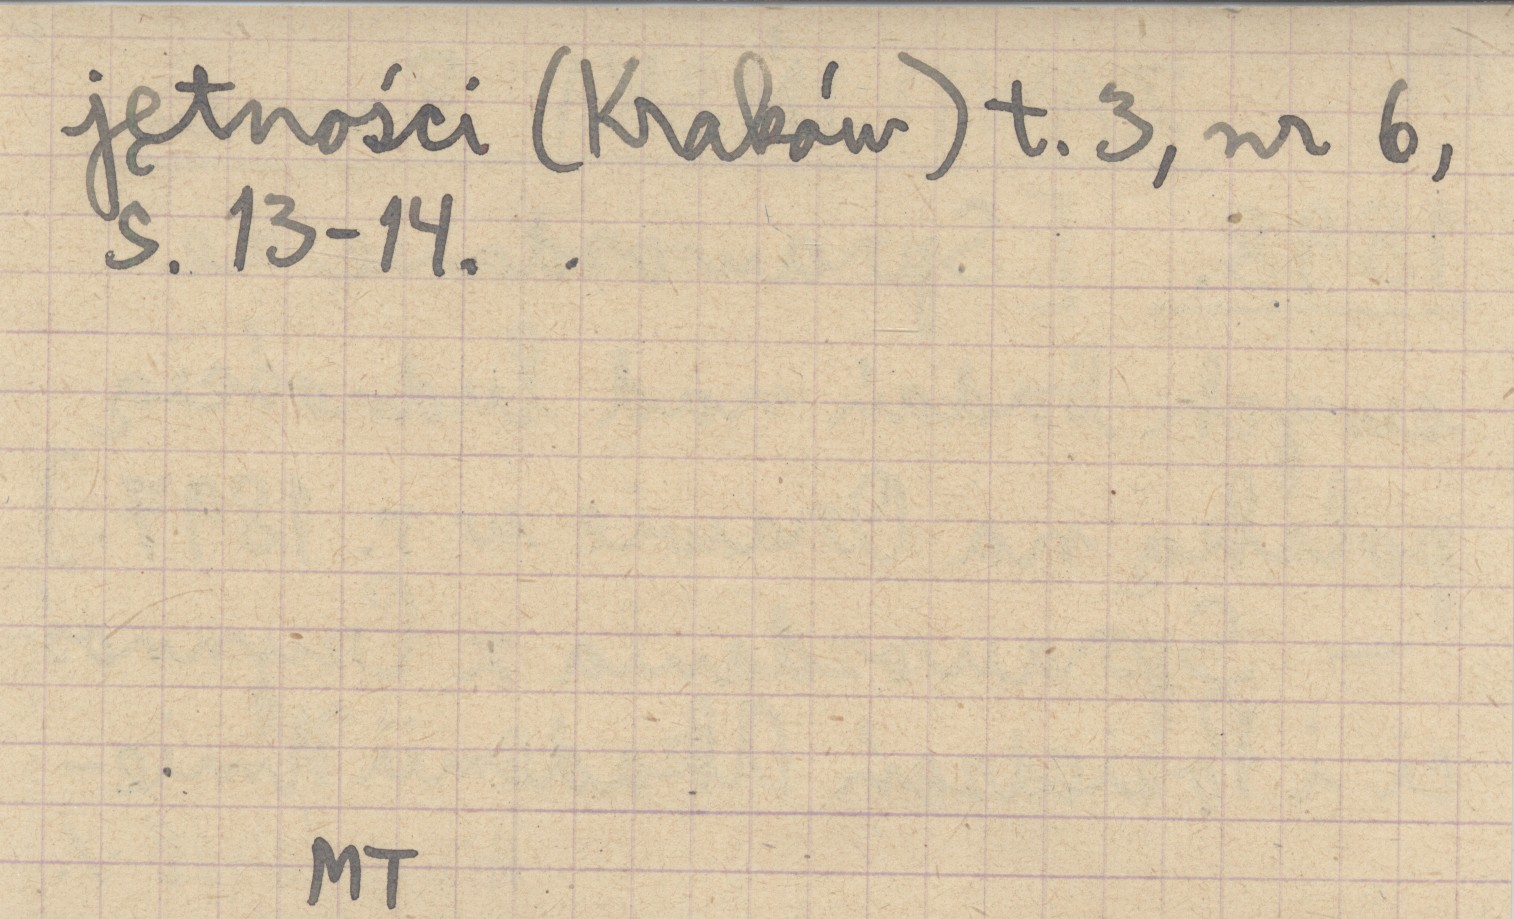 jętności (Kraków) t. 3, nr 6,
s. 13-14.
MT